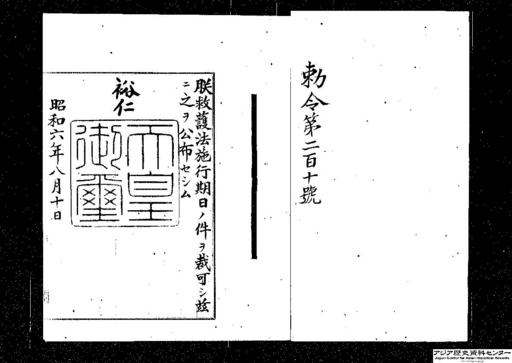 勅令第二百十號
朕救護法施行期日ノ件ヲ裁可シ茲
ニ之ヲ公布セシム
裕仁
天皇
御璽
昭和六年八月十日
アジア歴史資料センター
Japan Center for Asian Historical Records